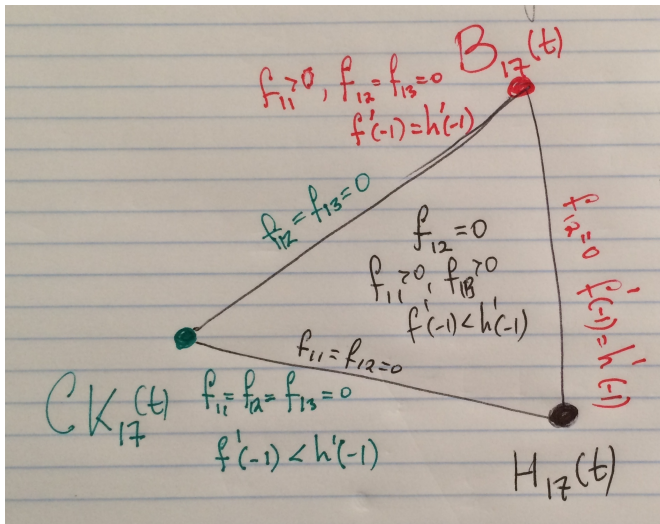 B₁₇(t)
f₁₁>0, f₁₂=f₁₃=0
f'(-1)=h'(-1)
f₁₂=f₁₃=0
f₁₂=0
f₁₁>0, f₁₃>0
f'(-1)<h'(-1)
f₁₂=0 f'(-1)=h'(-1)
f₁₁=f₁₂=0
CK₁₇(t)
f₁₁=f₁₂=f₁₃=0
f'(-1)<h'(-1)
H₁₇(t)